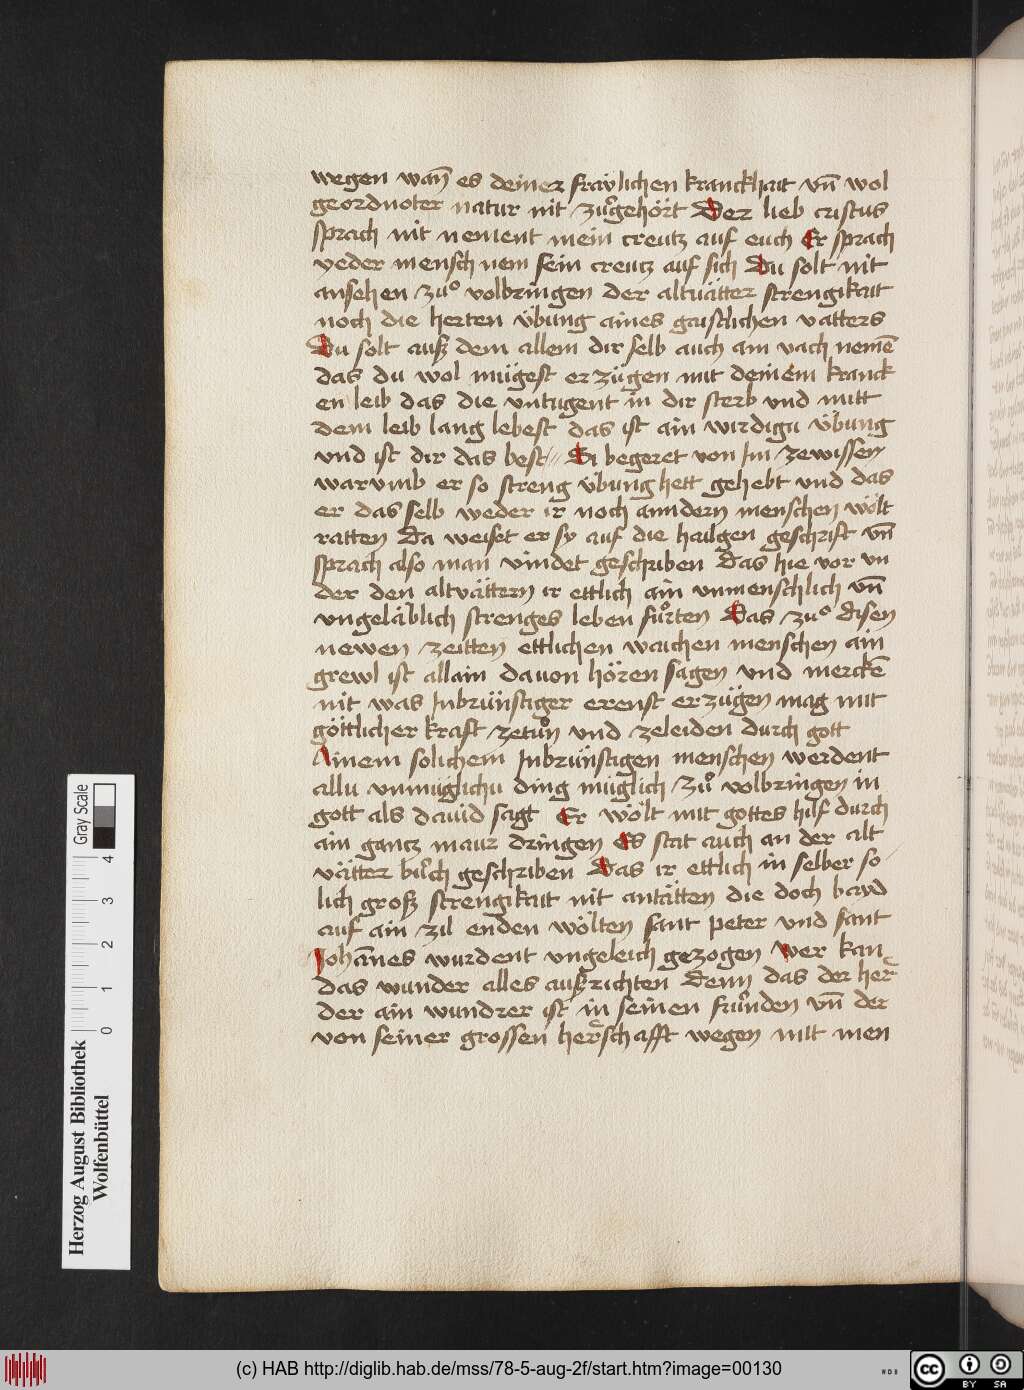 wegen wañ es deiner fraülichen kranckhait vñ wol
geordnoter natur nit zuͦgehört Der lieb cristus
sprach nit nement mein creutz auf euch Er sprach
yeder mensch nem sein creutz auf sich Du solt nit
ansehen zuͦ volbringen der altuätter strengikait
noch die herten übung aines gaistlichen vatters
Du solt auß dem allem dir selb auch ain vach nemē
das du wol mügest erzügen mit deinem kranck
en leib das die vntugent in dir sterb vnd mitt
dem leib lang lebest das ist ain wirdigu übung
vnd ist dir das best // Si begeret von Im zewissen
warumb er so streng übung hett gehebt vnd das
er das selb weder ir noch anndern menschen wölt
ratten Da weiset er sy auf die hailgen geschrift vñ
sprach also man vindet geschriben das hie vor vn
der den altvättern ir ettlich ain vnmenschlich vñ
vngeläblich strenges leben fuͦrten Das zuͦ disen
newen zeitten ettlichen waichen menschen ain
grewl ist allain dauon hören sagen vnd merckē
nit was Inbrünstiger erenst erzügen mag mit
göttlicher kraft zetuͦn vnd zeleiden durch gott
Ainem solichem Inbrünstigen menschen werdent
allu vnmüglichu ding müglich zuͦ volbringen in
gott als dauid sagt Er wölt mit gottes hilf durch
ain gantz maur dringen Es stat auch an der alt
vätter buͦch geschriben Das ir ettlich in selber so
lich groß strengikait nit antätten die doch bayd
auf ain zil enden wölten sant peter vnd sant
Johānes wurdent vngeleich gezogen Wer kan
das wunder alles außrichten denn das der her
der ain wundrer ist in seinen fruͦnden vñ der
von seiner grossen herschafft wegen mit men
Herzog August Bibliothek
Wolfenbüttel
0 1 2 3 4
Gray Scale
(c) HAB http://diglib.hab.de/mss/78-5-aug-2f/start.htm?image=00130
cc BY SA